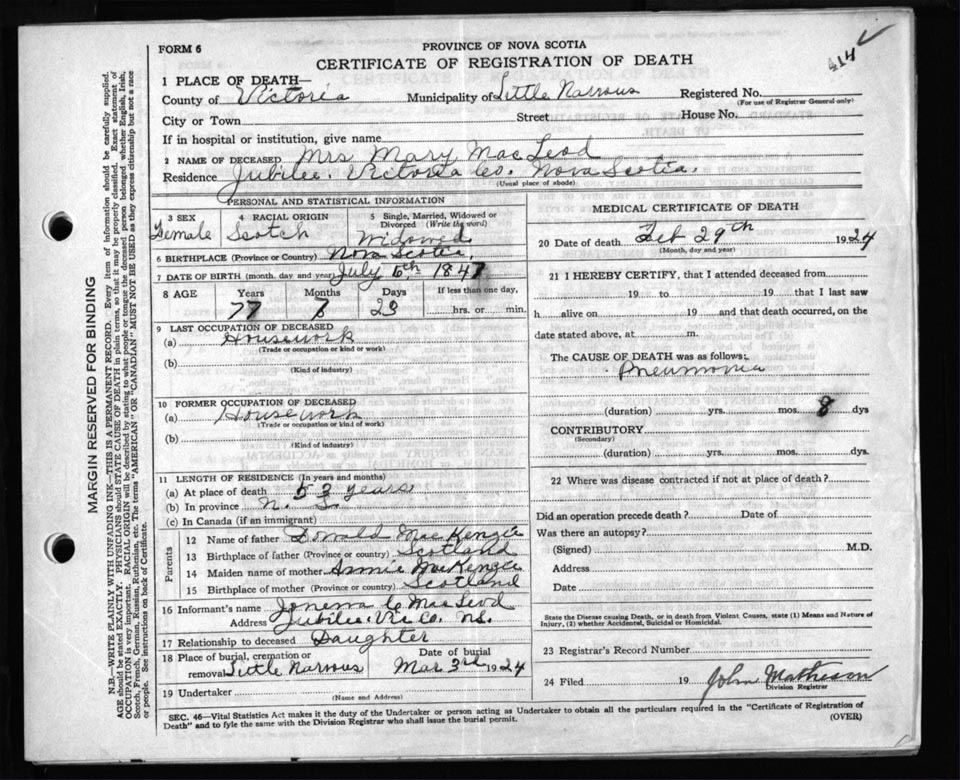 414 ✓
FORM 6
PROVINCE OF NOVA SCOTIA
CERTIFICATE OF REGISTRATION OF DEATH
1 PLACE OF DEATH—
County of Victoria Municipality of Little Narrows Registered No.
(For use of Registrar General only)
City or Town Street House No.
If in hospital or institution, give name
2 NAME OF DECEASED Mrs Mary MacLeod
Residence Jubilee. Victoria Co. Nova Scotia.
(Usual place of abode)
PERSONAL AND STATISTICAL INFORMATION
3 SEX 4 RACIAL ORIGIN 5 Single, Married, Widowed or Divorced (Write the word)
Female Scotch Widowed
6 BIRTHPLACE (Province or Country) Nova Scotia.
7 DATE OF BIRTH (month, day and year) July 6th 1847
8 AGE Years Months Days If less than one day,
77 7 23 hrs. or min.
9 LAST OCCUPATION OF DECEASED
(a) Housework
(Trade or occupation or kind or work)
(b)
(Kind of industry)
10 FORMER OCCUPATION OF DECEASED
(a) Housework
(Trade or occupation or kind of work)
(b)
(Kind of industry)
11 LENGTH OF RESIDENCE (In years and months)
(a) At place of death 53 years
(b) In province N. S.
(c) In Canada (if an immigrant)
Parents
12 Name of father Donald MacKenzie
13 Birthplace of father (Province or country) Scotland
14 Maiden name of mother Annie MacKenzie
15 Birthplace of mother (Province or country) Scotland
16 Informant's name C MacLeod
Address Jubilee. Vic Co. NS.
17 Relationship to deceased Daughter
18 Place of burial, cremation or removal Little Narrows Date of burial Mar 3rd 1924
19 Undertaker
(Name and Address)
MEDICAL CERTIFICATE OF DEATH
20 Date of death Feb 29th 1924
(Month, day and year)
21 I HEREBY CERTIFY, that I attended deceased from
19 to 19 that I last saw
h alive on 19 and that death occurred, on the
date stated above, at m.
The CAUSE OF DEATH was as follows:
Pneumonia
(duration) yrs. mos. 8 dys
CONTRIBUTORY
(Secondary)
(duration) yrs. mos. dys.
22 Where was disease contracted if not at place of death?
Did an operation precede death? Date of
Was there an autopsy?
(Signed) M.D.
Address
Date
State the Disease causing Death, or in death from Violent Causes, state (1) Means and Nature of
Injury, (2) whether Accidental, Suicidal or Homicidal.
23 Registrar's Record Number
24 Filed 19 John Matheson
Division Registrar
SEC. 46—Vital Statistics Act makes it the duty of the Undertaker or person acting as Undertaker to obtain all the particulars required in the "Certificate of Registration of
Death" and to fyle the same with the Division Registrar who shall issue the burial permit.
(OVER)
MARGIN RESERVED FOR BINDING
N.B.—WRITE PLAINLY WITH UNFADING INK—THIS IS A PERMANENT RECORD. Every item of information should be carefully supplied.
AGE should be stated EXACTLY. PHYSICIANS should STATE CAUSE OF DEATH in plain terms, so that it may be properly classified. Exact statement of
OCCUPATION is very important. RACIAL ORIGIN will be described by stating to what people or tongue the deceased person belonged whether English, Irish,
Scotch, French, German, Russian, Ruthenian, etc. The terms "AMERICAN" OR "CANADIAN" MUST NOT BE USED as they express citizenship but not a race
or people. See instructions on back of Certificate.